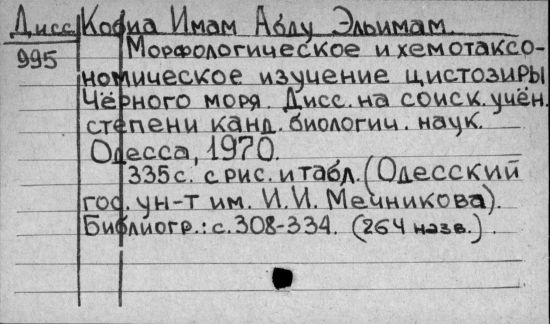 Дисс. Кофиа Имам Абду Эльимам.
995 Морфологическое и хемотаксо-
номическое изучение цистозиры
Чёрного моря. Дисс. на соиск. учён.
степени канд. биологич. наук.
Одесса, 1970.
335 с. с рис. и табл. (Одесский
гос. ун-т им. И.И. Мечникова).
Библиогр.: с. 308-334. (264 назв.).